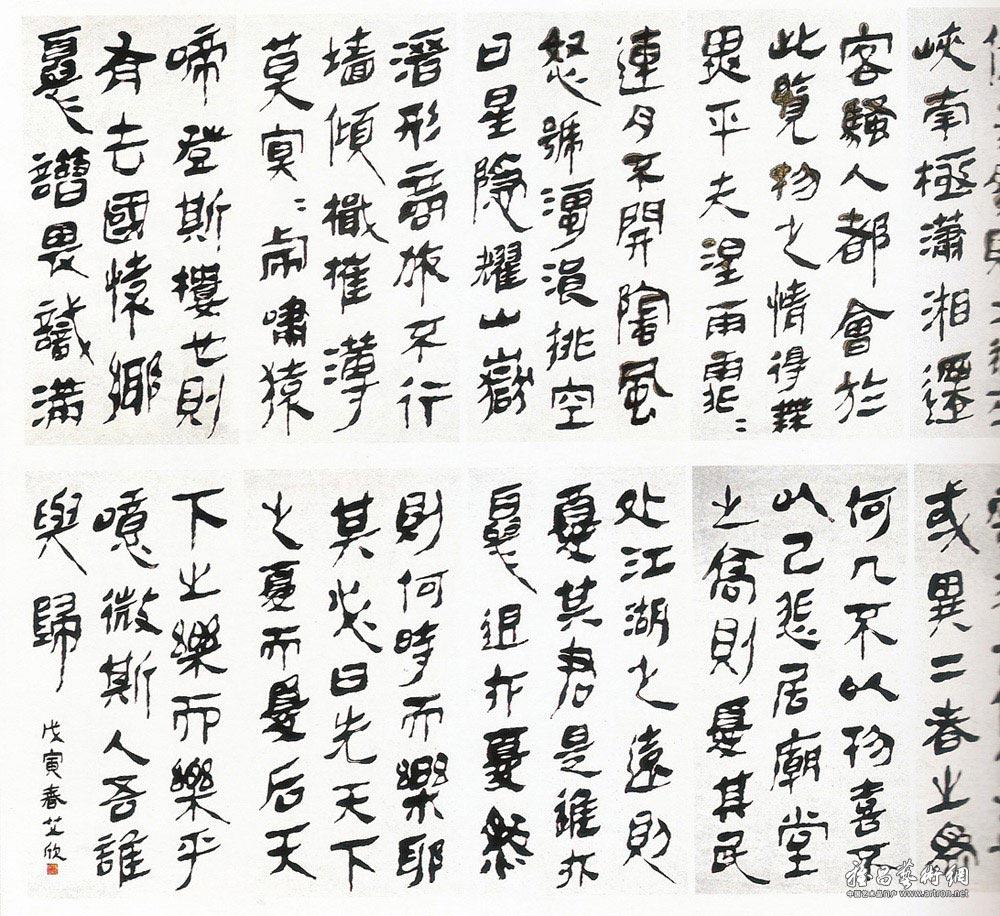 峽南極瀟湘遷
客騷人都會於
此覽物之情得無
異乎夫淫雨霏〻
連月不開陰風
怒號濁浪排空
日星隱耀山嶽
潛形商旅不行
墻傾檝摧薄
莫冥〻虎嘯猿
啼登斯樓也則
有去國懷鄉
憂讒畏譏滿
或異二者之為
何几不以物喜不
以己悲居廟堂
之高則憂其民
处江湖之遠則
憂其君是進亦
憂退亦憂然
則何時而樂耶
其必曰先天下
之憂而憂后天
下之樂而樂乎
噫微斯人吾誰
與歸
戊寅春艾欣
雅昌藝術網
中国艺术品门户 www.artron.net